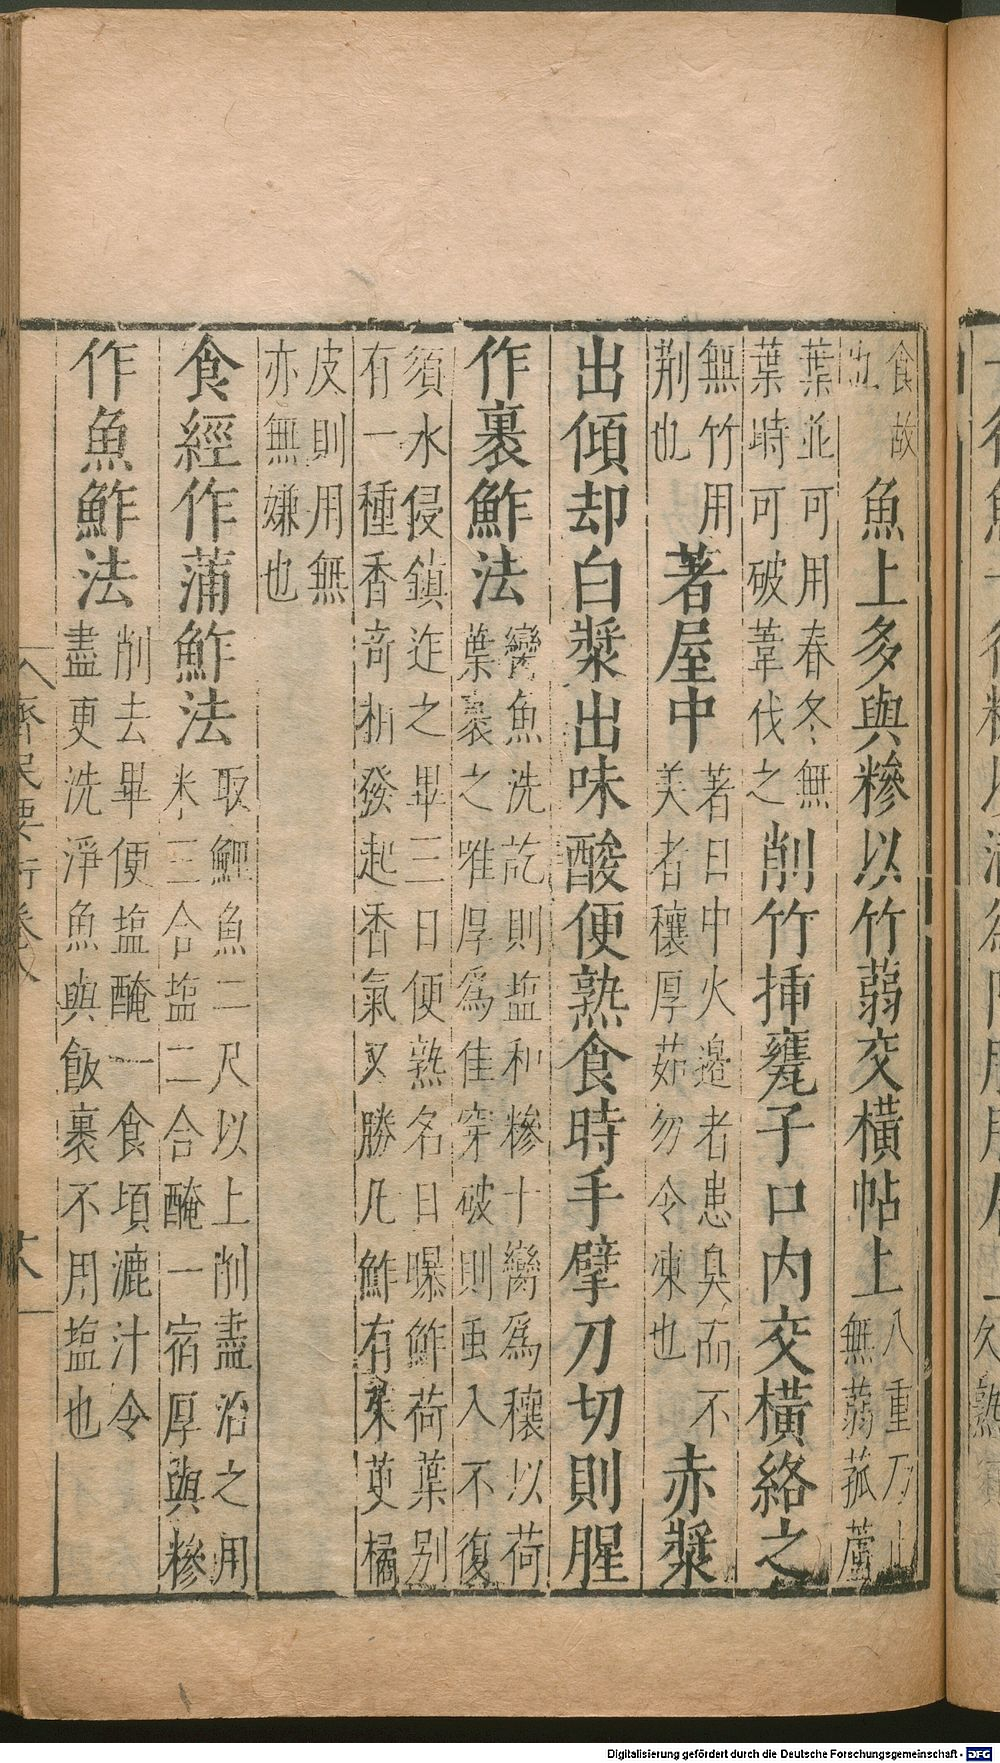 食故
魚上多與糝以竹蒻交橫帖上
八重乃止
無蒻菰蘆
葉並可用春冬無
葉時可破葦伐之
削竹挿甕子口內交橫絡之
無竹用
荆也
著屋中
著日中火邉者患臭而不
美者穰厚茹勿令凍也
赤漿
出傾却白漿出味酸便熟食時手擘刀切則腥
作裹鮓法
臠魚洗訖則塩和糝十臠爲穰以荷
葉裹之唯厚爲佳穿破則䖝入不復
須水侵鎮迮之畢三日便熟名日曝鮓荷葉别
有一種香竒相發起香氣又勝凡鮓有茱萸橘
皮則用無
亦無嫌也
食經作蒲鮓法
取鯉魚二尺以上削盡治之用
米三合塩二合醃一宿厚與糝
作魚鮓法
削去畢便塩醃一食頃漉汁令
盡更洗淨魚與飯裹不用塩也
齊民要術卷八
Digitalisierung gefördert durch die Deutsche Forschungsgemeinschaft - DFG